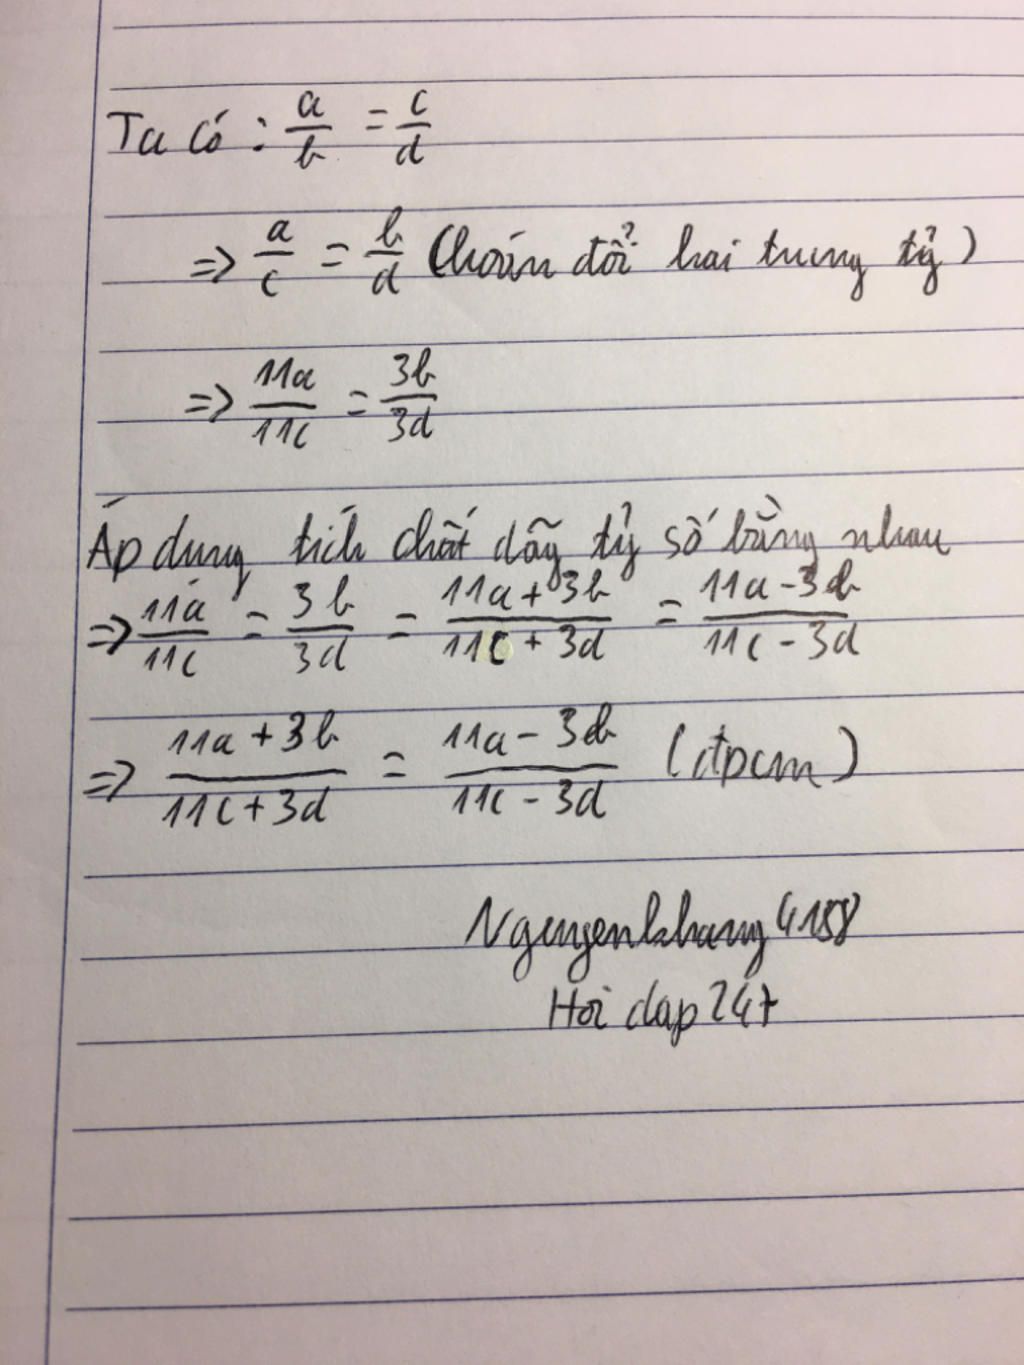 Ta có : a/b = c/d
=> a/c = b/d (hoán đổi hai trung tỷ)
=> 11a/11c = 3b/3d
Áp dụng tích chất dãy tỷ số bằng nhau
=> 11a/11c = 3b/3d = 11a+3b/11c+3d = 11a-3b/11c-3d
=> 11a+3b/11c+3d = 11a-3b/11c-3d (đpcm)
Nguyenkhang4188
Hoi dap 247